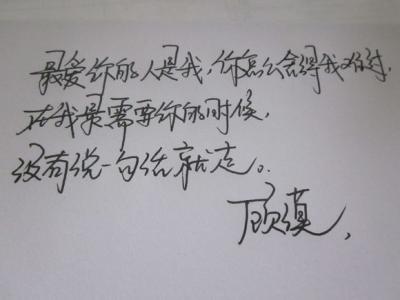 最爱你的人是我,你怎么舍得我难过,
在我最需要你的时候,
没有说一句话就走。
顾漠,